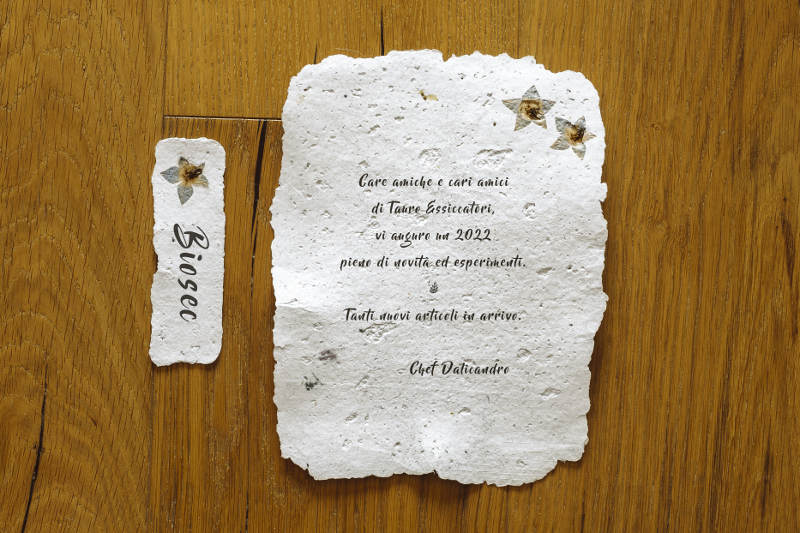 Biosec
Care amiche e cari amici
di Tauro Essiccatori,
vi auguro un 2022
pieno di novità ed esperimenti.
Tanti nuovi articoli in arrivo.
Chef Daticandro